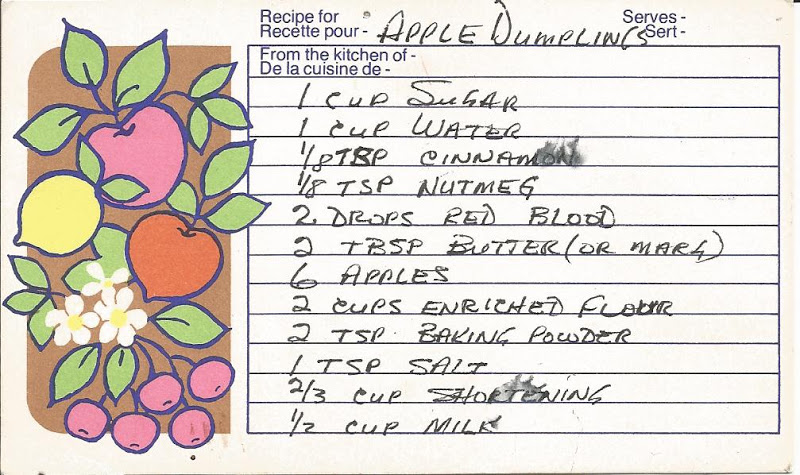 Recipe for Serves -
Recette pour - APPLE DUMPLINGS Sert -
From the kitchen of -
De la cuisine de -
1 CUP SUGAR
1 CUP WATER
1/8 TSP CINNAMON
1/8 TSP NUTMEG
2 DROPS RED BLOOD
2 TBSP BUTTER (OR MARG)
6 APPLES
2 CUPS ENRICHED FLOUR
2 TSP. BAKING POWDER
1 TSP SALT
2/3 CUP SHORTENING
1/2 CUP MILK